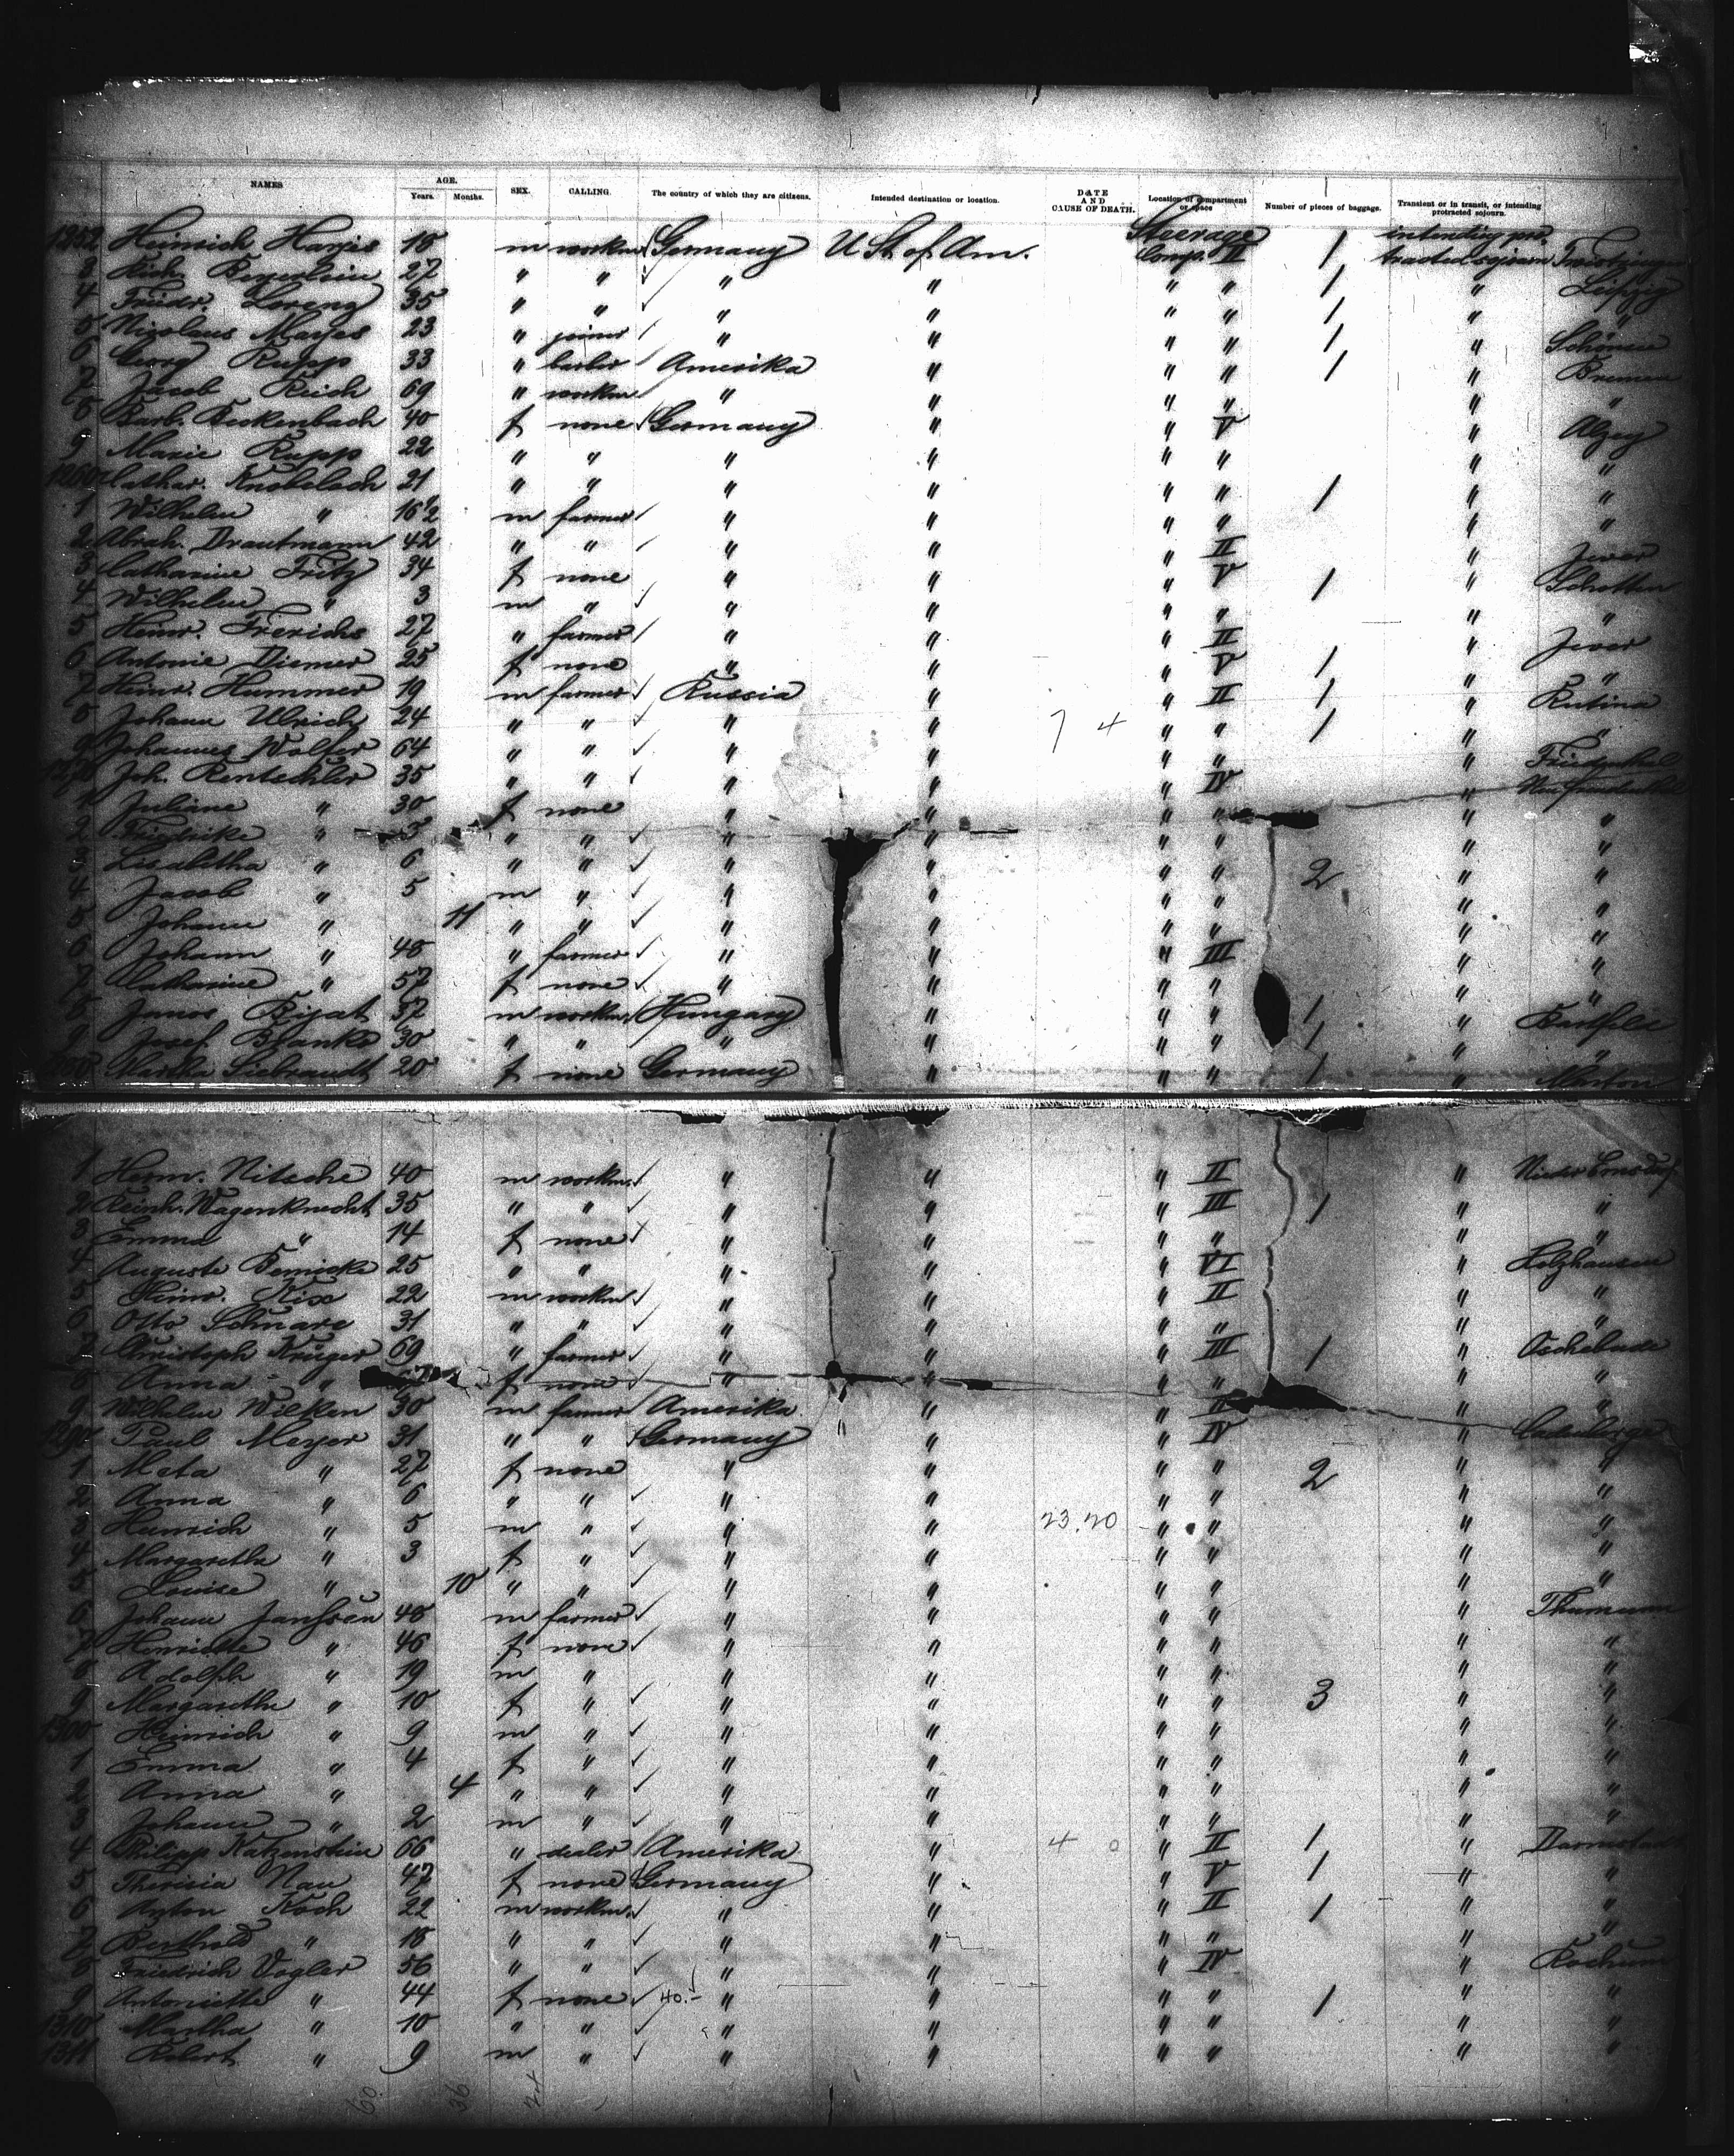 NAMES AGE. Years. Months. SEX. CALLING. The country of which they are citizens. Intended destination or location. DATE AND CAUSE OF DEATH. Location of compartment or space Number of pieces of baggage. Transient or in transit, or intending protracted sojourn.
1252 Heinrich 18 m workm Germany U. St. of Am. Steerage Comp. II 1 intending pro- tracted sojourn
3 27 " " " " " " 1 " Leipzig
4 Friedr. Lorenz 35 " " " " " " 1 " "
5 Nicolaus 23 " joiner " " " " 1 "
6 Georg Rupp 33 " barber Amerika " " " 1 " Bremen
7 Jacob Reich 69 " workm " " " " " "
8 Barb. Beckenbach 40 f none Germany " " V " Alzey
9 Marie Rupp 22 " " " " " " " "
1260 Cathar. Knobeloch 21 " " " " " " 1 " "
1 Wilhelm " 16 1/2 m farmer " " " " " "
2 Abrah. Drautmann 42 " " " " " II " Jever
3 Catharine Fritz 34 f none " " " V 1 " Schotten
4 Wilhelm " 3 m " " " " " " "
5 Heinr. Frerichs 27 " farmer " " " II " Jever
6 Antonie Diemer 25 f none " " " V 1 " "
7 Heinr. Hummer 19 m farmer Russia " " II 1 "
8 Johann Ulrich 24 " " " " 7 4 " " 1 " "
9 Johannes Wolfer 64 " " " " " " " Friedenthal
Joh. Rentschler 35 " " " " " IV "
1 Juliane " 30 f none " " " " "
2 Friedricke " " " " " " " " "
3 Lisabetha " 6 " " " " " " " "
4 Jacob " 5 m " " " " " 2 " "
5 Johann " 11 " " " " " " " "
6 Johann " 48 " farmer " " " III " "
7 Catharine " 57 f none " " " " " "
8 Janos 37 m workm. Hungary " " " 1 " Bartfeld
9 Josef 30 " " " " " " 1 " "
1280 Martha Siebrandt 20 f none Germany " " " 1 "
1 Herm. Nitsche 40 m workm. " " " II "
2 Reinh. Wagenknecht 35 " " " " " III 1 " "
3 Emma " 14 f none " " " " " "
4 Auguste 25 " " " " " VI " Holzhausen
5 Heinr. 22 m workm " " " II " "
6 Otto Schnare 31 " " " " " " " "
7 Christoph Krüger 69 " farmer " " " III 1 "
8 Anna " f none " " " " " "
9 Wilhelm Wilken 30 m farmer Amerika " " II " "
1290 Paul Meyer 31 " " Germany " " IV " Cadenberge
1 Meta " 27 f none " " " " 2 " "
2 Anna " 6 " " " " " " " "
3 Heinrich " 5 m " " " 23.20 " " " "
4 Margarethe " 3 f " " " " " " "
5 Louise " 10 " " " " " " " "
6 Johann Janssen 48 m farmer " " " " "
7 Henriette " 46 f none " " " " " "
8 Adolph " 19 m " " " " " " "
9 Margarethe " 10 f " " " " " 3 " "
1300 Heinrich " 9 m " " " " " " "
1 Emma " 4 f " " " " " " "
2 Anna " 4 " " " " " " " "
3 Johann " 2 m " " " " " " "
4 Philipp Katzenstein 66 " dealer Amerika " 4 0 " II 1 " Darmstadt
5 Theresia Nau 47 f none Germany " " V 1 " "
6 Anton Koch 22 m workm. " " " II 1 " "
7 Berthold " 18 " " " " " " " "
8 Friedrich Vogler 56 " " " " " IV " Bochum
9 Antoniette " 44 f none 40.- " " " " 1 " "
1310 Martha " 10 " " " " " " " "
1311 Robert " 9 m " " " " " " "
60 36 24